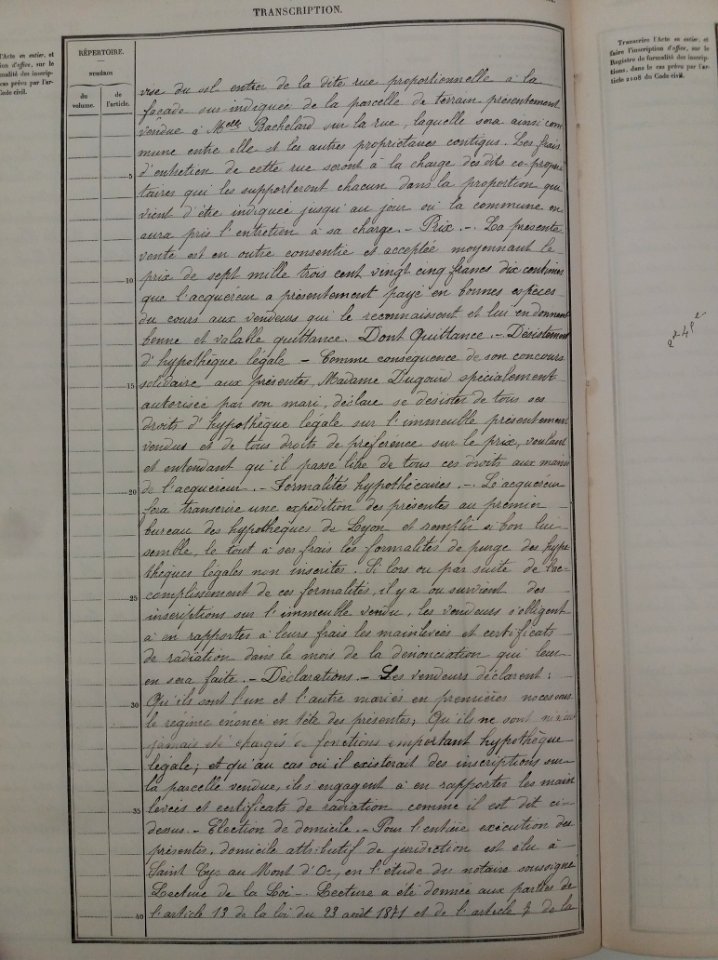 TRANSCRIPTION.
l'Acte en entier, et
ion d'office, sur le
malité des inscrip-
cas prévu par l'ar-
Code civil.
RÉPERTOIRE.
NUMÉROS
du volume.
de l'article.
vue du sol entier de la dite rue proportionnelle à la
façade sus-indiquée de la parcelle de terrain présentement
vendue à Melle Bachelard sur la rue, laquelle sera ainsi com
mune entre elle et les autres propriétaires contigus. Les frais
5
d'entretien de cette rue seront à la charge des dits co-propri
taires qui les supporteront chacun dans la proportion qui
vient d'être indiquée jusqu'au jour où la commune en
aura pris l'entretien à sa charge. - Prix. - La présente
vente est en outre consentie et acceptée moyennant le
10
prix de sept mille trois cent vingt cinq francs dix centimes
que l'acquéreur a présentement payé en bonnes espèces
du cours aux vendeurs qui le reconnaissent et lui en donnent
bonne et valable quittance. Dont Quittance. - Désistement
d'hypothèque légale - Comme conséquence de son concours
15
solidaire aux présentes, Madame Dugourd spécialement
autorisée par son mari, déclare se désister de tous ses
droits d'hypothèque légale sur l'immeuble présentement
vendus et de tous droits de préférence sur le prix, voulant
et entendant qu'il passe libre de tous ces droits aux mains
20
de l'acquéreur. - Formalités hypothécaires. - L'acquéreur
fera transcrire une expédition des présentes au premier
bureau des hypothèques de Lyon et remplir si bon lui
semble, le tout à ses frais les formalités de purge des hypo
thèques légales non inscrites. Si lors ou par suite de l'ac
25
complissement de ces formalités, il y a ou survient des
inscriptions sur l'immeuble vendu, les vendeurs s'obligent
à en rapporter à leurs frais les mainlevées et certificats
de radiation dans le mois de la dénonciation qui leur
en sera faite. - Déclarations. - Les vendeurs déclarent:
30
Qu'ils sont l'un et l'autre mariés en premières noces sous
le régime énoncé en tête des présentes; Qu'ils ne sont ni
jamais été chargés de fonctions important hypothèque
légale; et qu'au cas où il existerait des inscriptions sur
la parcelle vendue, ils s'engagent à en rapporter les main
35
levées et certificats de radiation comme il est dit ci-
dessus. - Election de domicile. - Pour l'entière exécution des
présentes, domicile attributif de juridiction est élu à
Saint Cyr au Mont d'Or, en l'étude du notaire soussigné
Lecture de la Loi - Lecture a été donnée aux parties de
40
l'article 13 de la loi du 23 août 1871 et de l'article 7 de la
Transcrire l'Acte en entier, et
faire l'inscription d'office, sur le
Registre de formalité des inscrip-
tions, dans le cas prévu par l'ar-
ticle 2108 du Code civil.